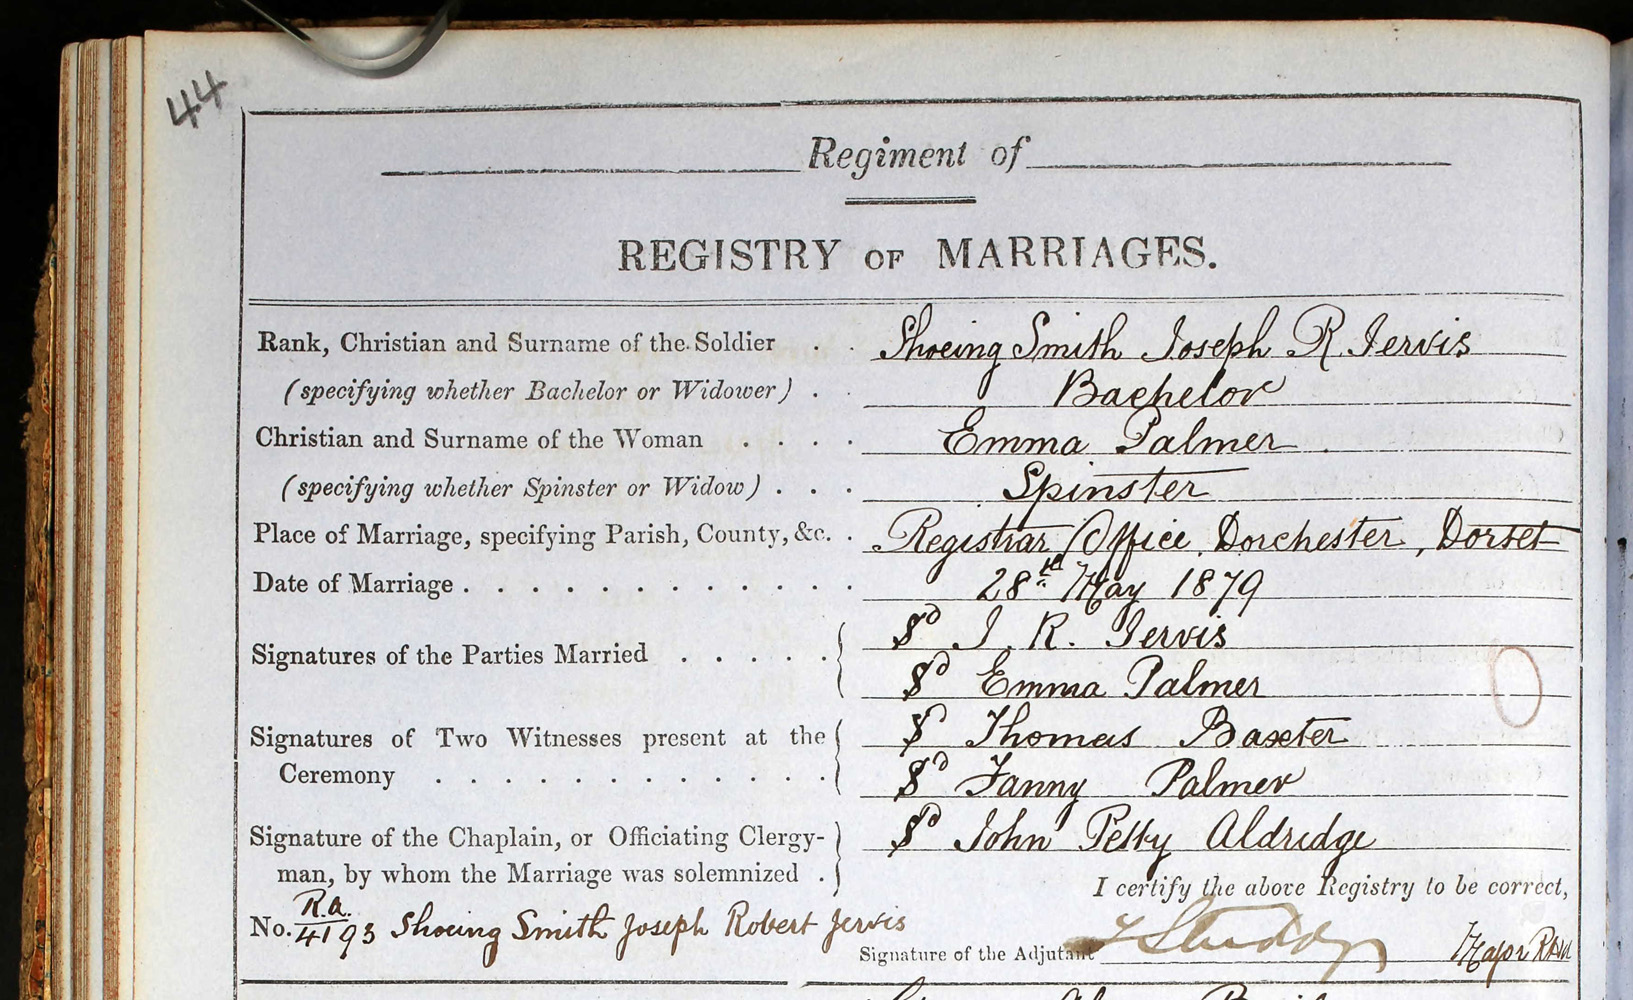 44
Regiment of
REGISTRY OF MARRIAGES.
Rank, Christian and Surname of the Soldier . . Shoeing Smith Joseph R. Jervis
(specifying whether Bachelor or Widower) . . Bachelor
Christian and Surname of the Woman . . . . Emma Palmer
(specifying whether Spinster or Widow) . . . Spinster
Place of Marriage, specifying Parish, County, &c. . Registrar Office, Dorchester, Dorset
Date of Marriage . . . . . . . . . . . . . 28th May 1879
Sd J. R. Jervis
Signatures of the Parties Married . . . . .
Sd Emma Palmer
Signatures of Two Witnesses present at the Sd Thomas Baxter
Ceremony . . . . . . . . . . . . . Sd Fanny Palmer
Signature of the Chaplain, or Officiating Clergy- Sd John Aldridge
man, by whom the Marriage was solemnized .
I certify the above Registry to be correct,
No. R.A. 4193 Shoeing Smith Joseph Robert Jervis
Signature of the Adjutant Major